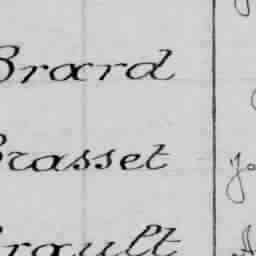 Brard
Brasset
Brault